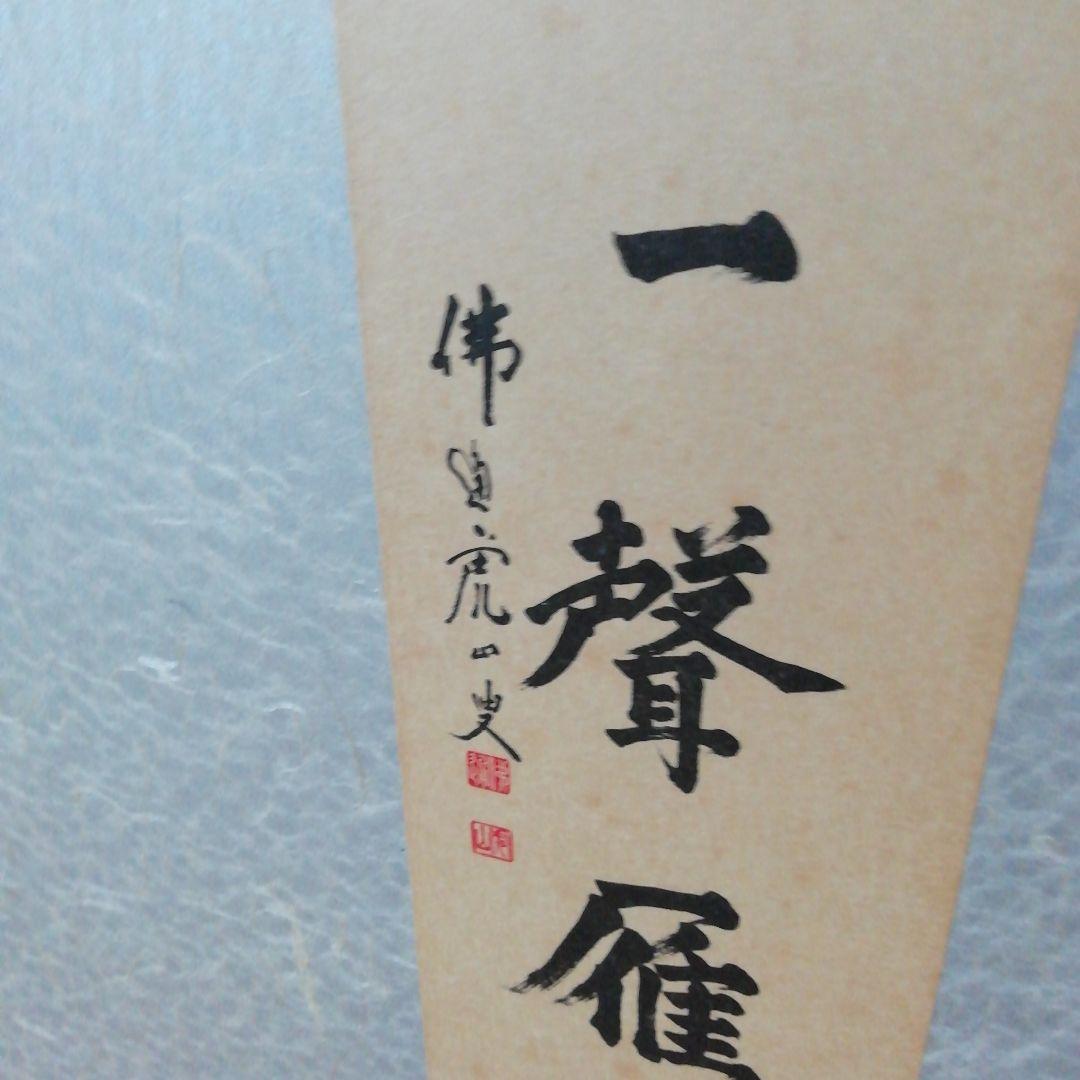 一聲雁
佛通虎山叟